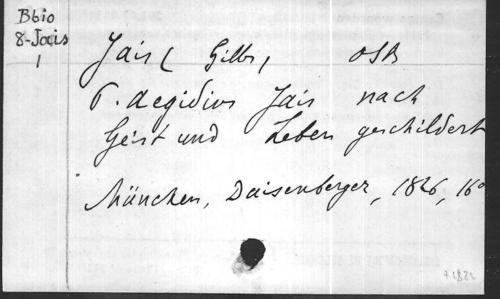 Bbio
8-Jais
1
Jais (Gilb) OSB
P. Aegidius Jais nach
Geist und Leben geschildert
München, Daisenberger, 1826, 16°